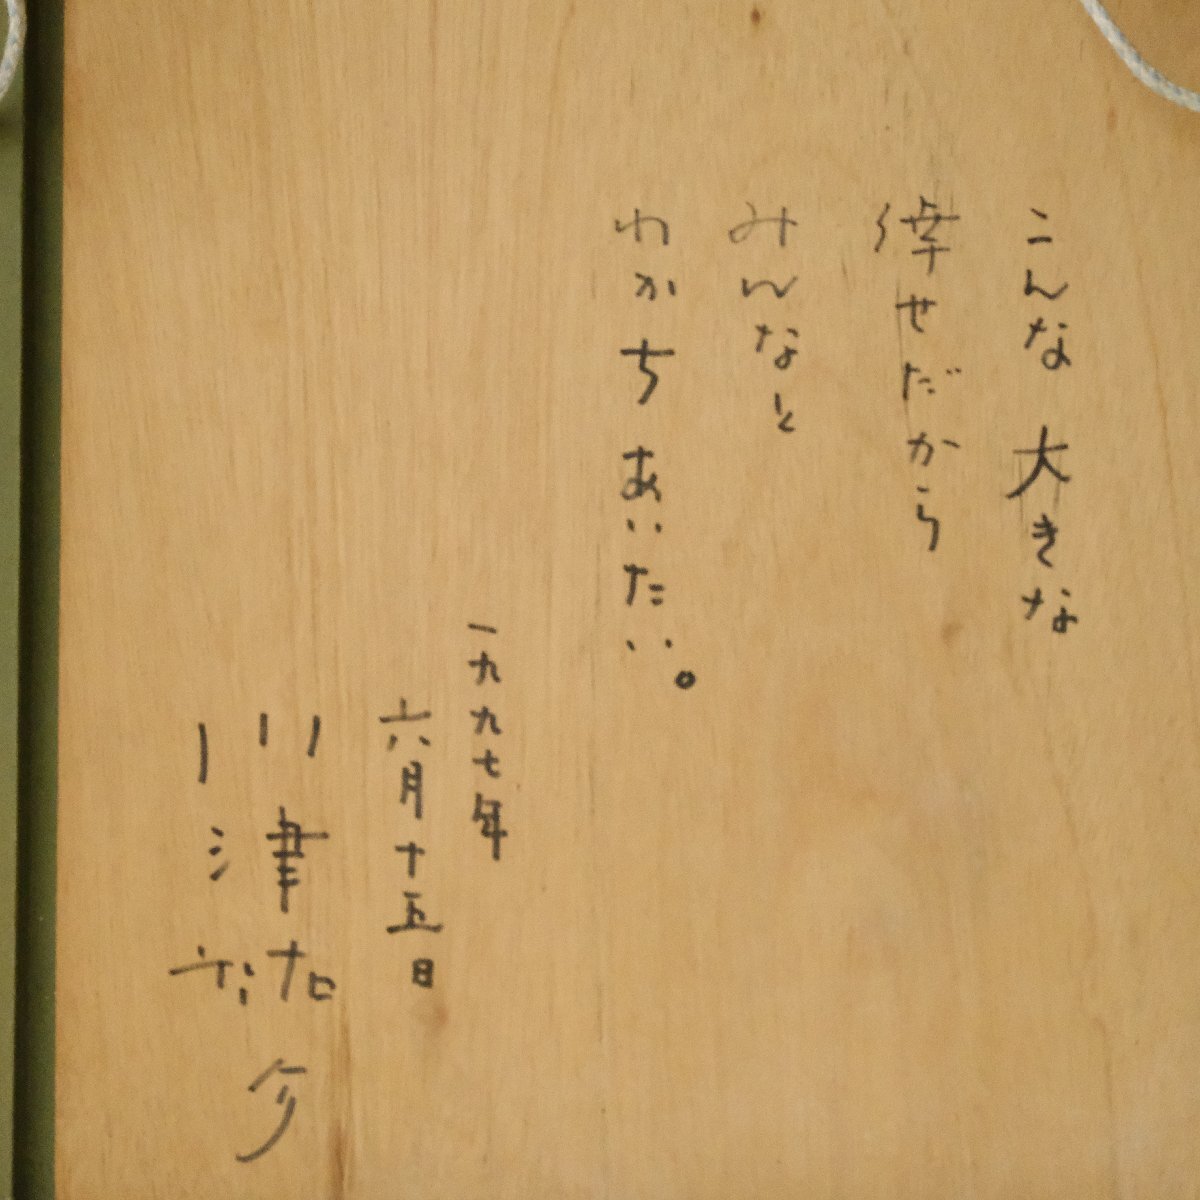 こんな大きな
倖せだから
みんなと
わかちあいたい。
一九九七年
六月十五日
川津祐介